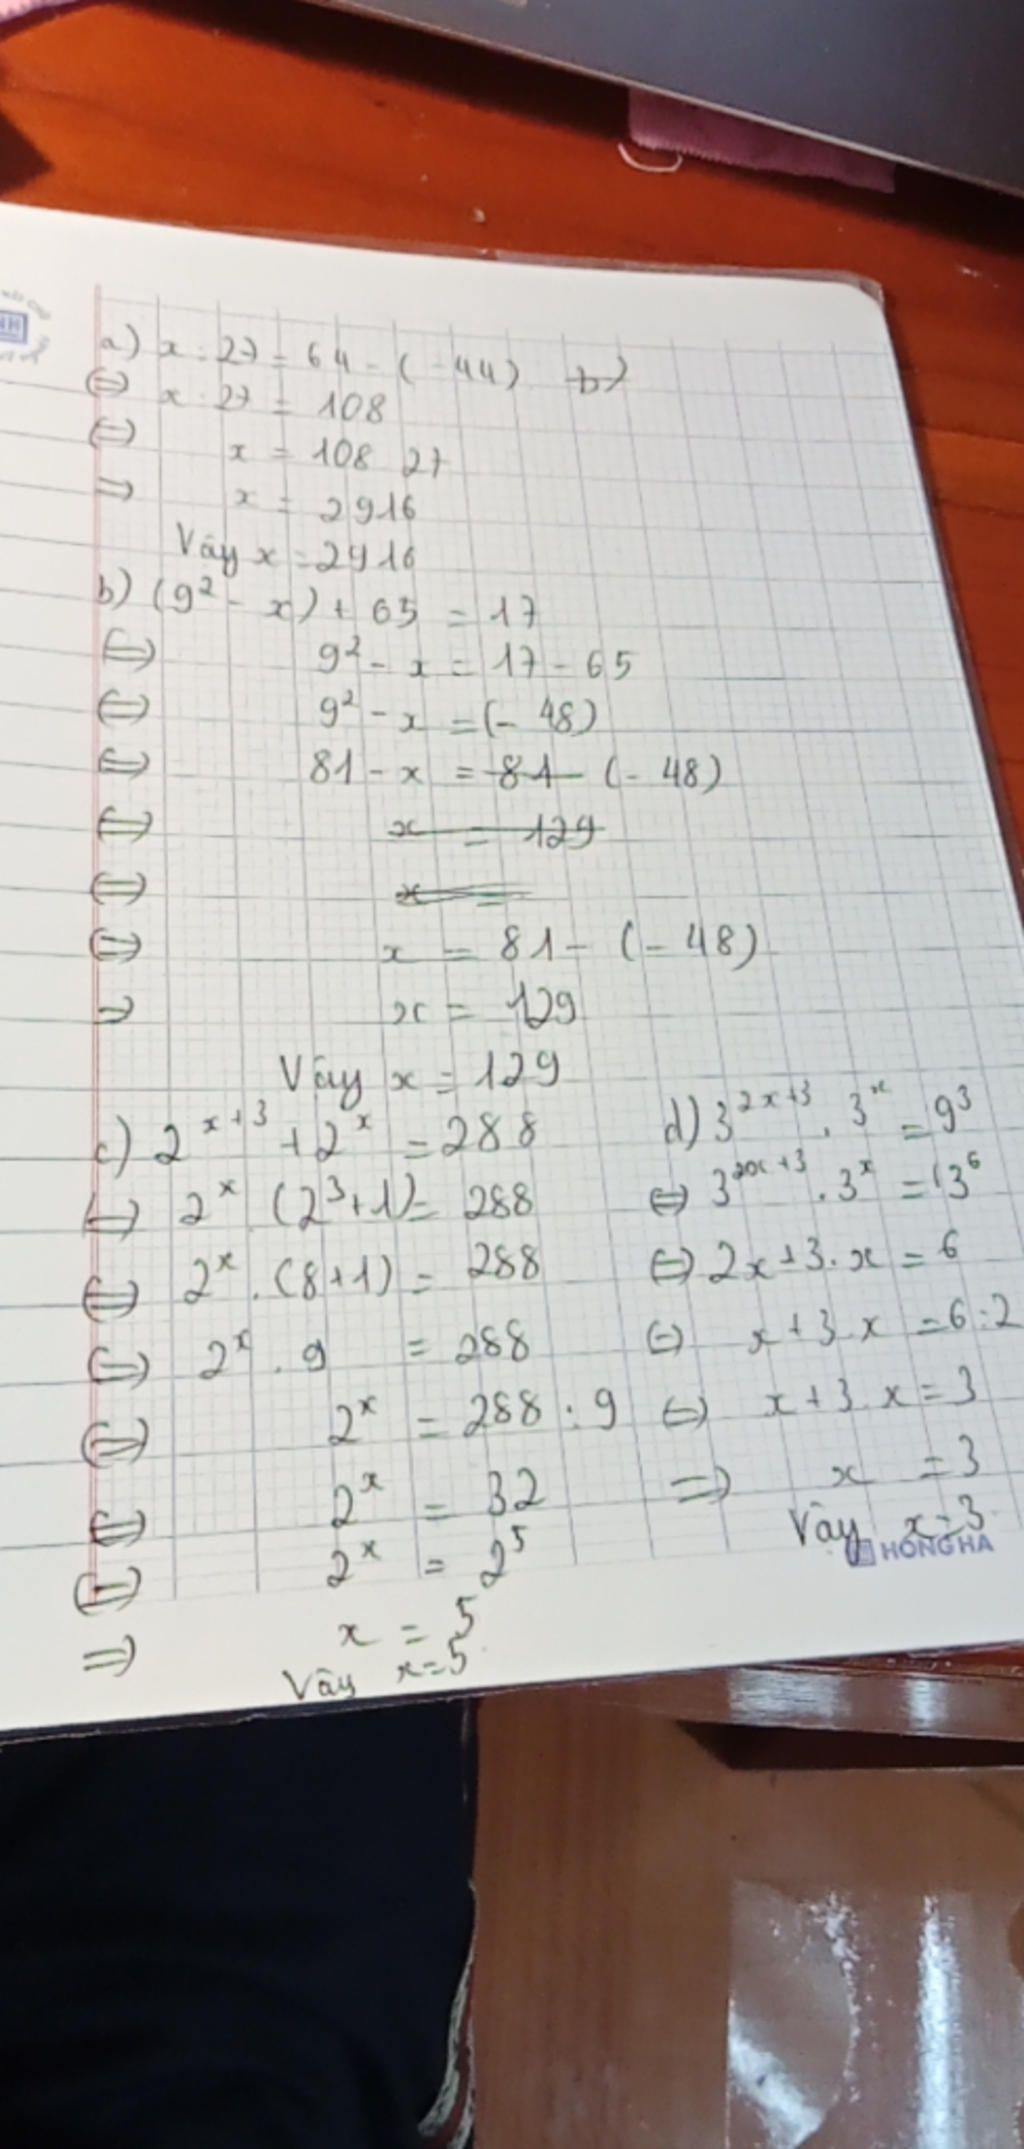 a) x : 27 = 64 - (-44) b)
⇔ x : 27 = 108
⇔ x = 108 . 27
⇒ x = 2916
Vây x = 2916
b) (9² - x) + 65 = 17
⇔ 9² - x = 17 - 65
⇔ 9² - x = (- 48)
⇔ 81 - x = 81 (- 48)
⇔ x = 129
⇔ x =
⇔ x = 81 - (- 48)
⇒ x = 129
Vây x = 129
c) 2^{x+3} + 2^x = 288
⇔ 2^x . (2³ + 1) = 288
⇔ 2^x . (8 + 1) = 288
⇔ 2^x . 9 = 288
⇔ 2^x = 288 : 9
⇔ 2^x = 32
⇔ 2^x = 2⁵
⇒ x = 5
Vây x = 5
d) 3^{2x+3} . 3^x = 9³
⇔ 3^{2x+3} . 3^x = 3⁶
⇔ 2x + 3 . x = 6
⇔ x + 3 . x = 6 : 2
⇔ x + 3 . x = 3
⇒ x = 3
Vây x = 3
HONG HA